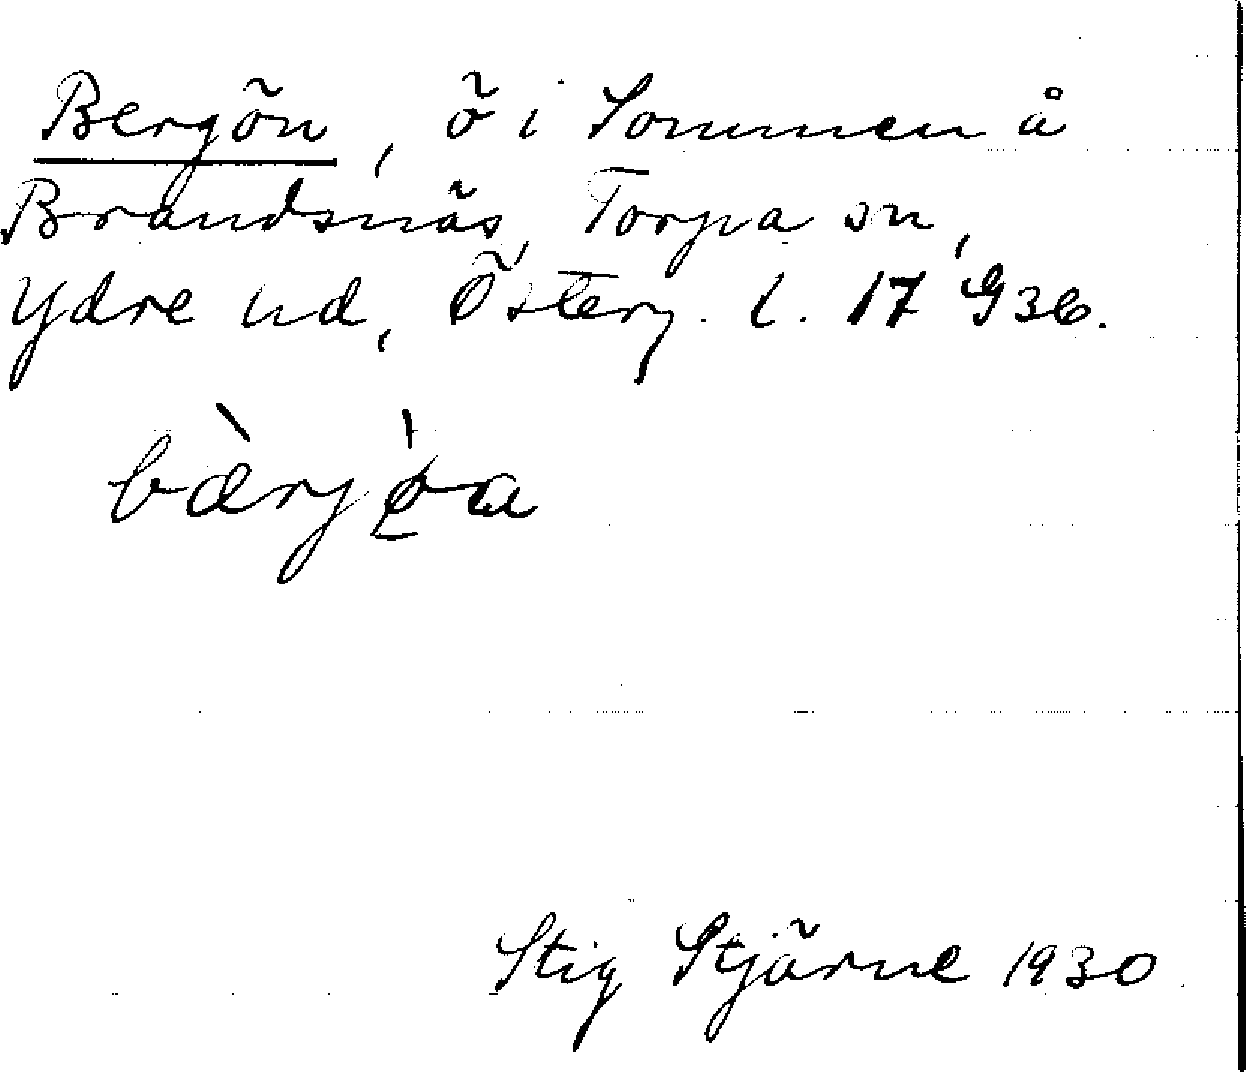 Bergön, ö i Sommen å
Brandsnäs, Torpa sn,
Ydre hd, Österg. l. 17 G36.
bæ̀rjø̀a
Stig Stjärne 1930